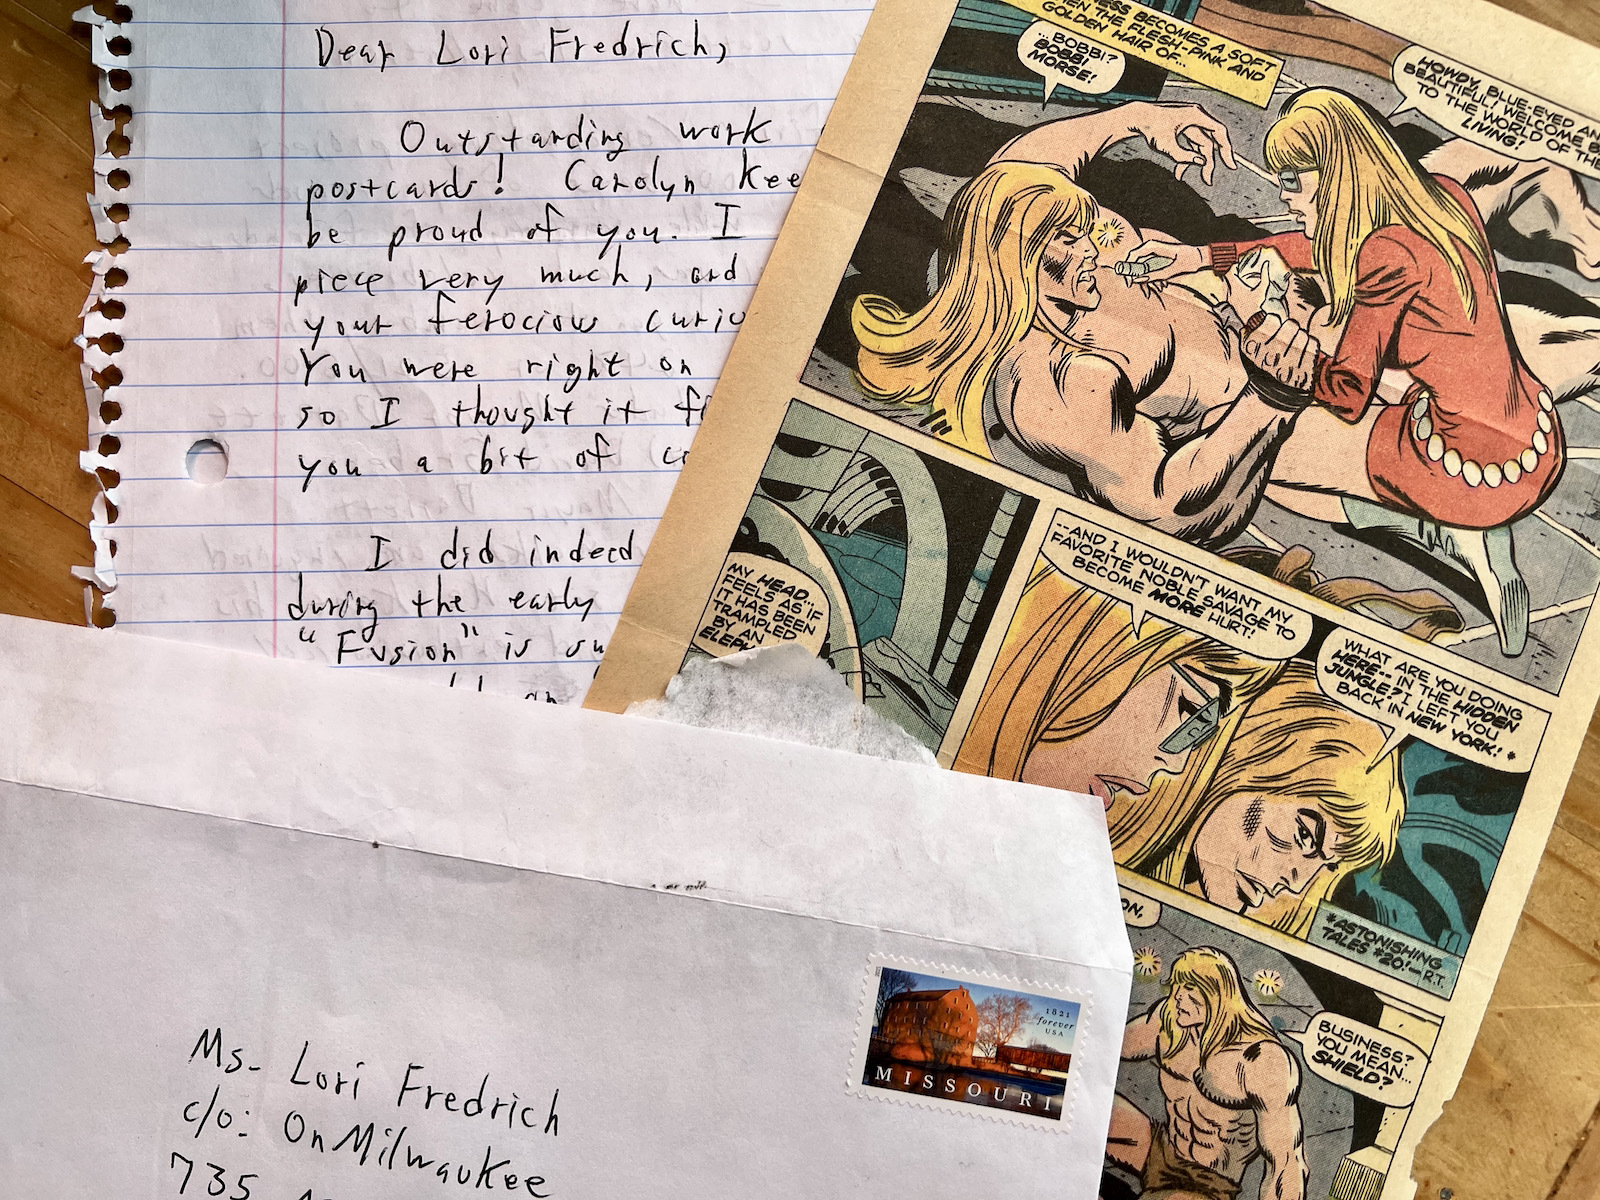 Dear Lori Fredrich,
Outstanding work
postcards! Carolyn Kee
be proud of you. I
piece very much, and
your ferocious curio
You were right on
so I thought it fi
you a bit of co
I did indeed
during the early
"Fusion" is su
NESS BECOMES A SOFT
WHEN THE FLESH-PINK AND
GOLDEN HAIR OF...
...BOBBI?
BOBBI
MORSE!
HOWDY, BLUE-EYED AN
BEAUTIFUL! WELCOME B
TO THE WORLD OF THE
LIVING!
MY HEAD...
FEELS AS IF
IT HAS BEEN
TRAMPLED
BY AN
ELEPH
--AND I WOULDN'T WANT MY
FAVORITE NOBLE SAVAGE TO
BECOME MORE HURT!
WHAT ARE YOU DOING
HERE-- IN THE HIDDEN
JUNGLE? I LEFT YOU
BACK IN NEW YORK! *
*ASTONISHING
TALES #20!--R.T.
ON,
BUSINESS?
YOU MEAN...
SHIELD?
1821
forever
USA
MISSOURI
Ms. Lori Fredrich
c/o: OnMilwaukee
735